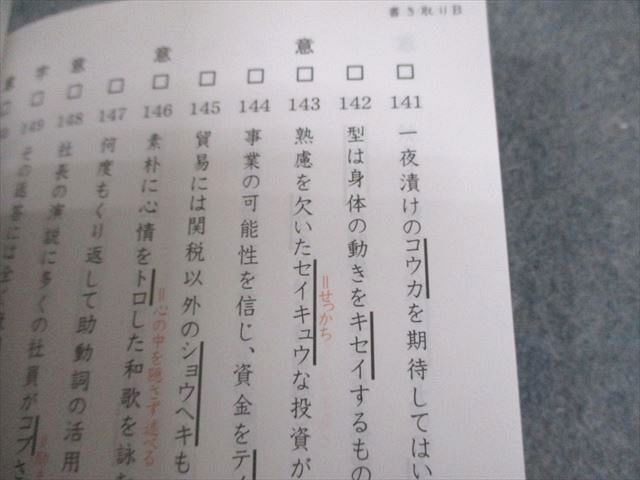 書き取りB
141 一夜漬けのコウカを期待してはい
142 型は身体の動きをキセイするもの
意
143 熟慮を欠いたセイキュウな投資が
=せっかち
144 事業の可能性を信じ、資金をテ
145 貿易には関税以外のショウヘキも
意
146 素朴に心情をトロした和歌を詠
=心の中を隠さず述べる
147 何度もくり返して助動詞の活用
意
148 社長の演説に多くの社員がコブさ
字
149 その返答には全く